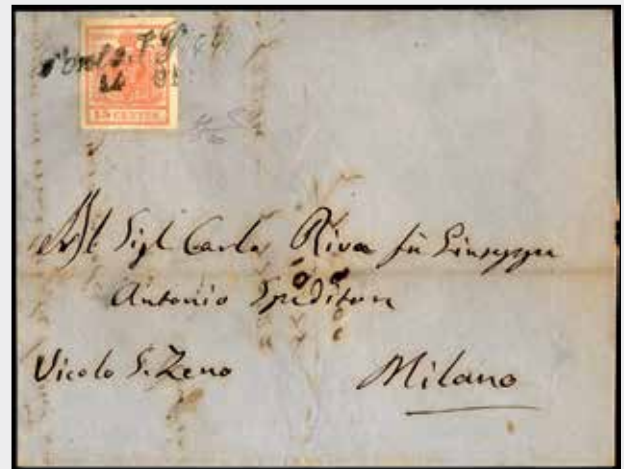 15 CENTES
Sigr Carlo Riva fu Giuseppe
Antonio Speditore
Vicolo S. Zeno
Milano